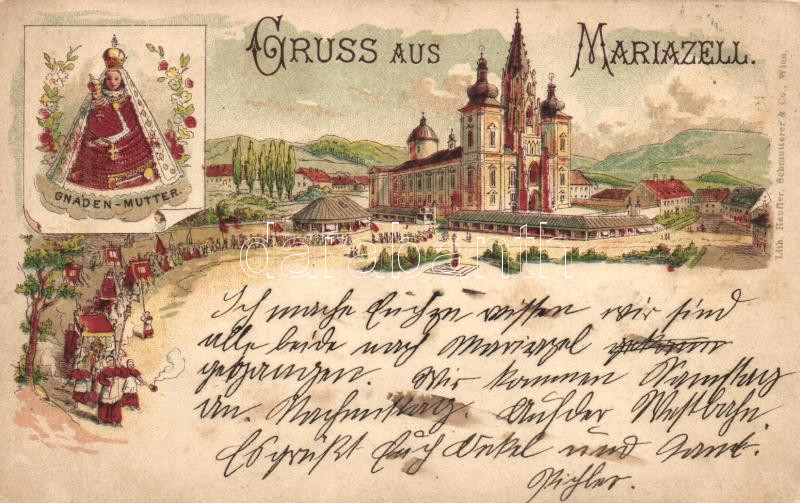 GRUSS AUS MARIAZELL.
GNADEN-MUTTER.
Lith. Haufler, Schmutterer & Co. Wien.
darabanth
Ich mache Euch zu wissen wir sind
alle beide nach Mariazel
gegangen. Wir kommen Samstag
an. Nachmittag. Auf der Westbahn.
Es grüßt Euch Onkel und Tant.
Pichler.